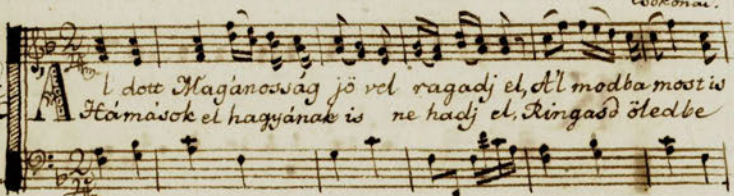 Csokonai.
Áldott Magánosság jövel ragadj el, Ál modba most is
Ha mások el hagyának is ne hadj el, Ringasd öledbe